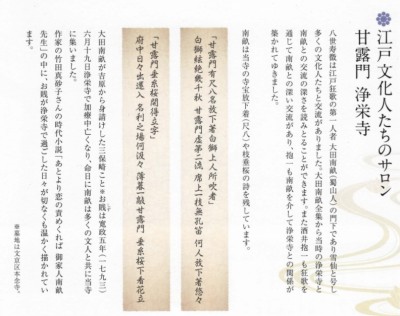 江戸文化人たちのサロン
甘露門 浄栄寺
八世寿徴は江戸狂歌の第一人者 大田南畝(蜀山人)の門下であり雪仙と号し
多くの文化人たちと交流がありました。大田南畝全集から当時の浄栄寺と
南畝との交流の深さを読みとることができます。また酒井抱一も狂歌を
通じて南畝との深い交流があり、抱一も南畝を介して浄栄寺との関係が
築かれてゆきました。
南畝は当寺の寺宝放下着(尺八)や枝垂桜の詩を残しています。
「甘露門有尺八名放下著白獅上人所吹者」
白獅絃絶幾千秋 甘露門虚第二流 席上一枝無孔笛 何人放下著悠々
「甘露門垂糸桜開得立字」
府中日々出還入 名利之場何汲々 薄暮一敲甘露門 垂糸桜下看花立
大田南畝が吉原から身請けした三保崎こと※お賎は寛政五年(一七九三)
六月十九日浄栄寺で加療中亡くなり、命日に南畝は多くの文人と共に当寺
に集いました。
作家の竹田真砂子さんの時代小説「あとより恋の責めくれば 御家人南畝
先生」の中に、お賎が浄栄寺で過ごした日々が切なくも温かく描かれてい
ます。
※墓地は文京区本念寺。